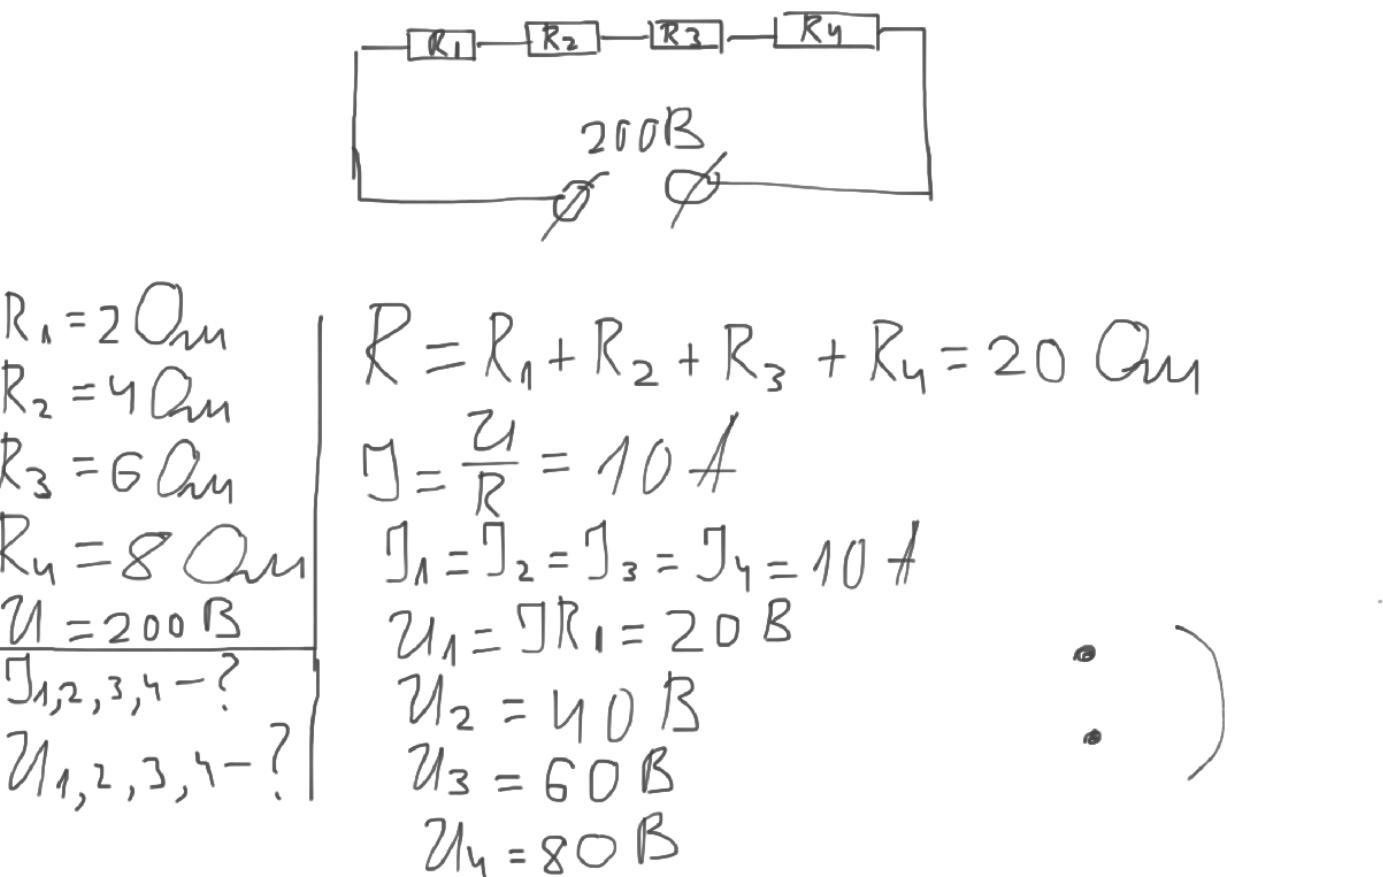 R1 R2 R3 R4
200В
R1 = 2 Ом
R2 = 4 Ом
R3 = 6 Ом
R4 = 8 Ом
U = 200 В
J1,2,3,4 - ?
U1,2,3,4 - ?
R = R1 + R2 + R3 + R4 = 20 Ом
J = U/R = 10 А
J1 = J2 = J3 = J4 = 10 А
U1 = JR1 = 20 В
U2 = 40 В
U3 = 60 В
U4 = 80 В
:)